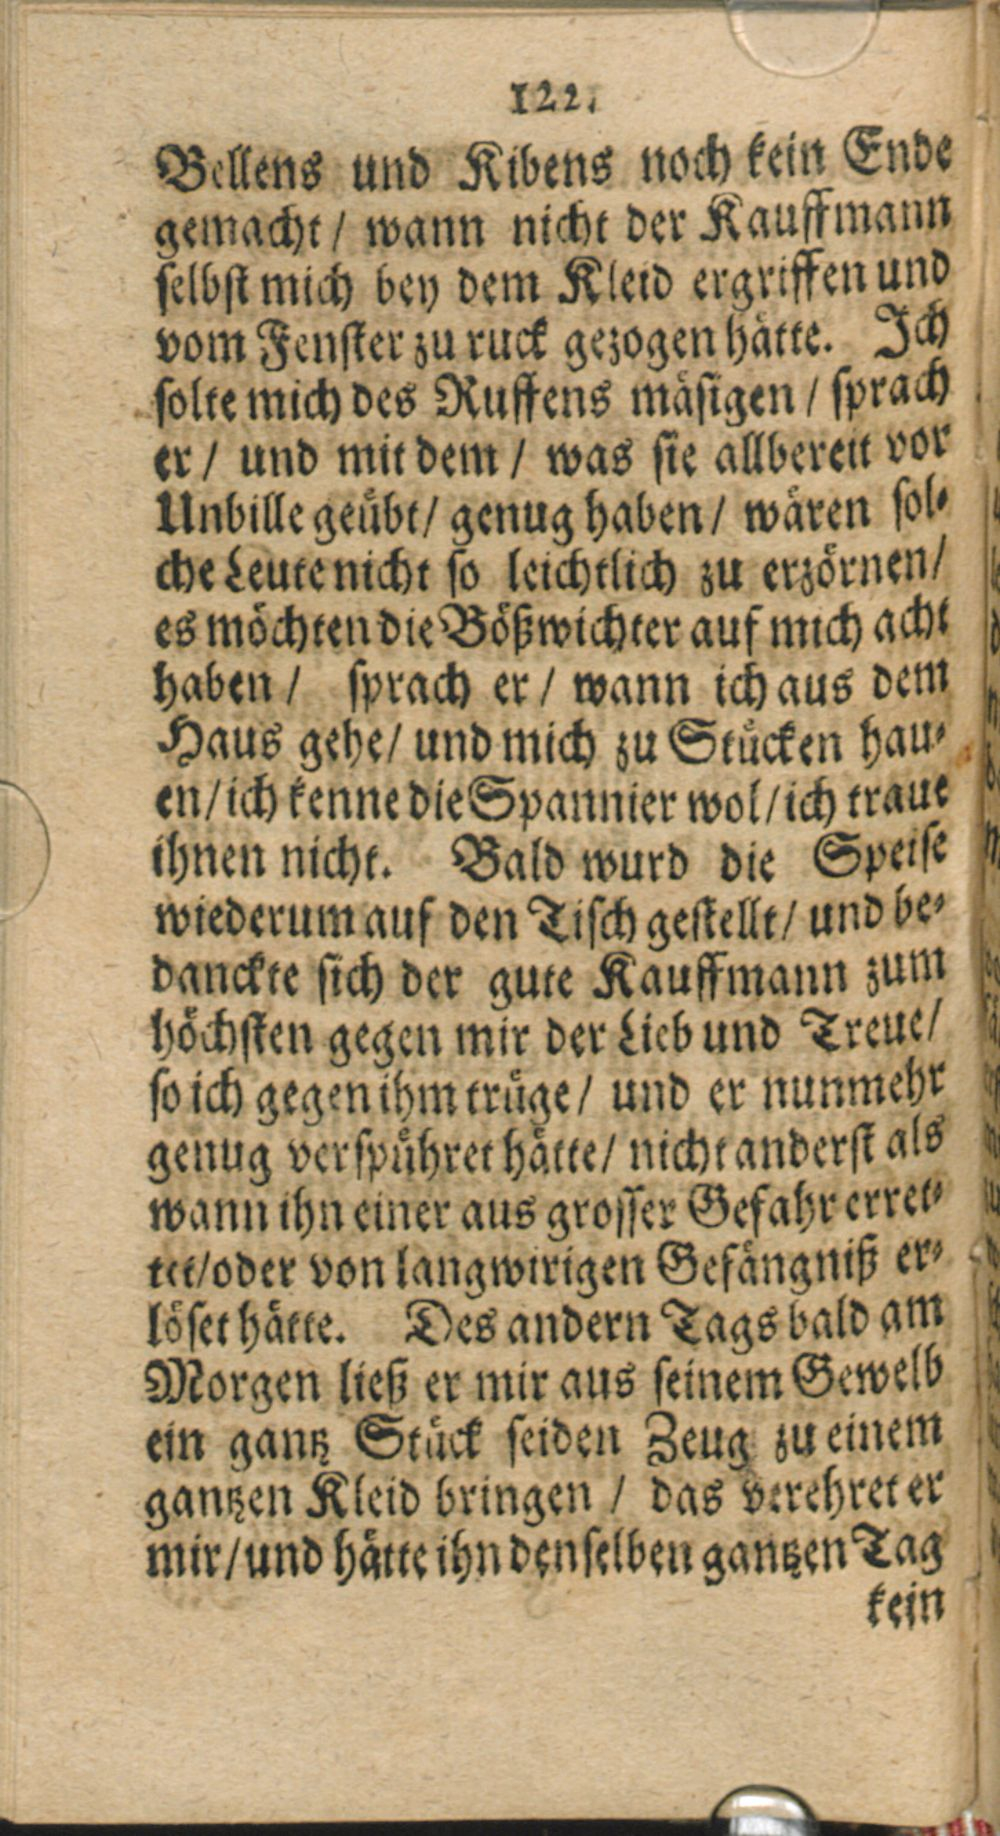 122.
Bellens und Kibens noch kein Ende
gemacht / wann nicht der Kauffmann
selbst mich bey dem Kleid ergriffen und
vom Fenster zu ruck gezogen hätte. Ich
solte mich des Ruffens mäsigen / sprach
er / und mit dem / was sie allbereit vor
Unbille geübt / genug haben / wären sol-
che Leute nicht so leichtlich zu erzörnen /
es möchten die Bößwichter auf mich acht
haben / sprach er / wann ich aus dem
Haus gehe / und mich zu Stücken hau-
en / ich kenne die Spannier wol / ich traue
ihnen nicht. Bald wurd die Speise
wiederum auf den Tisch gestellt / und be-
danckte sich der gute Kauffmann zum
höchsten gegen mir der Lieb und Treue /
so ich gegen ihm trüge / und er nunmehr
genug verspühret hätte / nicht anderst als
wann ihn einer aus grosser Gefahr erret-
tet / oder von langwirigen Gefängniß er-
löset hätte. Des andern Tags bald am
Morgen ließ er mir aus seinem Gewelb
ein gantz Stück seiden Zeug zu einem
gantzen Kleid bringen / das verehret er
mir / und hätte ihn denselben gantzen Tag
kein